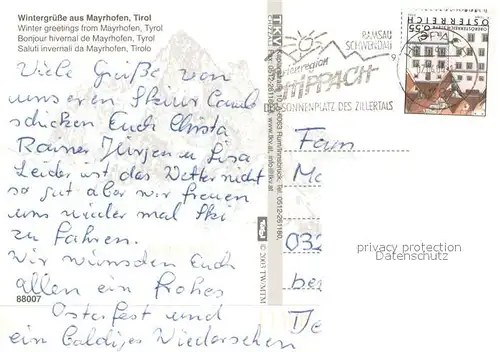 Wintergrüße aus Mayrhofen, Tirol
Winter greetings from Mayrhofen, Tyrol
Bonjour hivernal de Mayrhofen, Tyrol
Saluti invernali da Mayrhofen, Tirolo
Viele Grüße von
unserem Skiurlaub
schicken Euch Christa
Rainer Jürgen u Lisa
Leider ist das Wetter nicht
so gut aber wir freuen
uns wieder mal Ski
zu fahren.
Wir wünschen Euch
allen ein frohes
Osterfest und
ein baldiges Wiedersehen
88007
TKV
© 2003 TW/MTM
RAMSAU
SCHWENDAU
Ferienregion
HIPPACH
DER SONNENPLATZ DES ZILLERTALS
ÖSTERREICH
0,55
Fam
032
be
De
privacy protection
Datenschutz